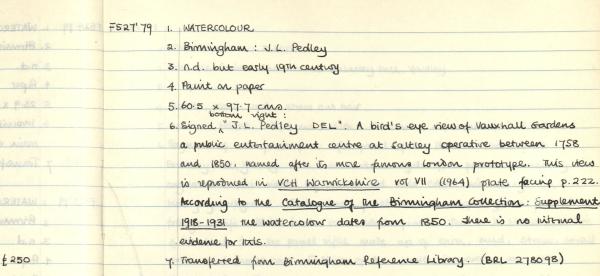 F527'79 1. WATERCOLOUR
2. Birmingham : J.L. Pedley
3. n.d. but early 19th century
4. Paint on paper
5. 60.5 x 97.7 cms.
bottom right :
6. Signed ^ "J.L. Pedley DEL". A bird's eye view of Vauxhall Gardens
a public entertainment centre at Saltley operative between 1758
and 1850, named after its more famous London prototype. This view
is reproduced in VCH Warwickshire vol VII (1964) plate facing p.222.
According to the Catalogue of the Birmingham Collection: Supplement
1918-1931 the watercolour dates from 1850. There is no internal
evidence for this.
£250 7. Transferred from Birmingham Reference Library. (BRL 278098)